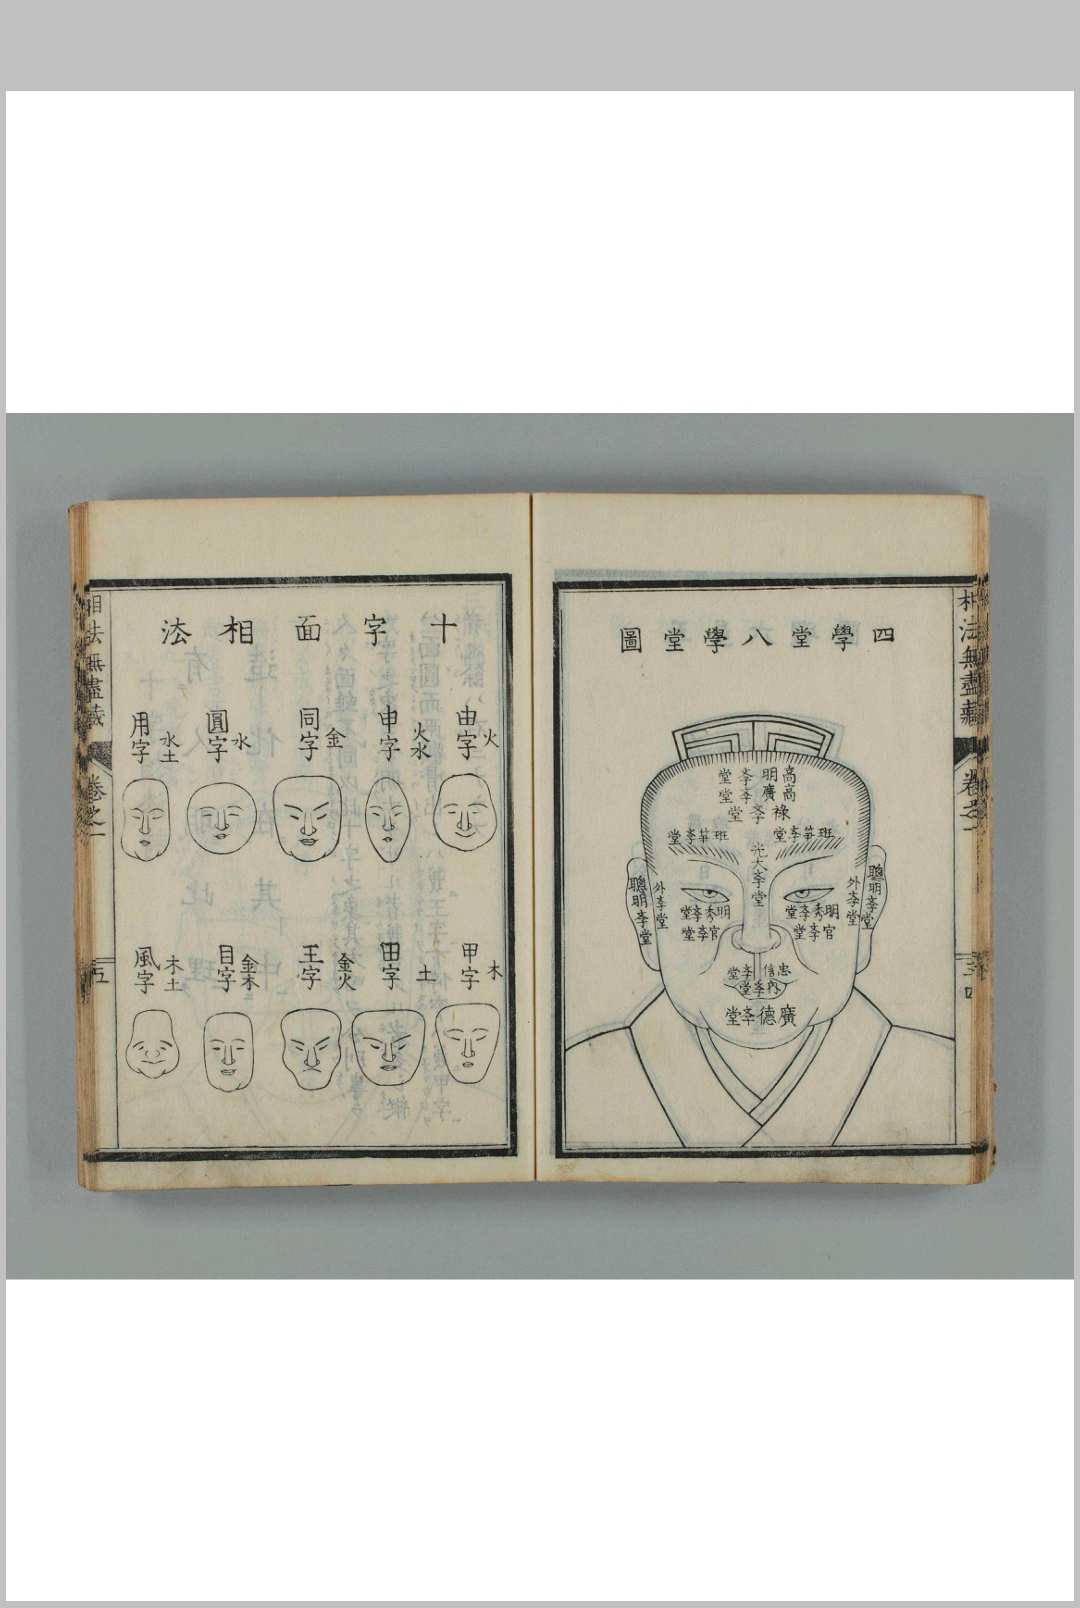 相法無盡藏
卷之一
四
四學堂八學堂圖
高明李堂
高廣李堂
祿李堂
班笋李堂
班笋李堂
光大李堂
聰明李堂
外李堂
外李堂
聰明李堂
明秀李堂
官李堂
明秀李堂
官李堂
忠信李堂
內李堂
廣德李堂
十字面相法
由字
火
申字
火水
同字
金
圓字
水
用字
水土
甲字
木
田字
土
王字
金火
目字
金木
風字
木土
相法無盡藏
卷之一
五